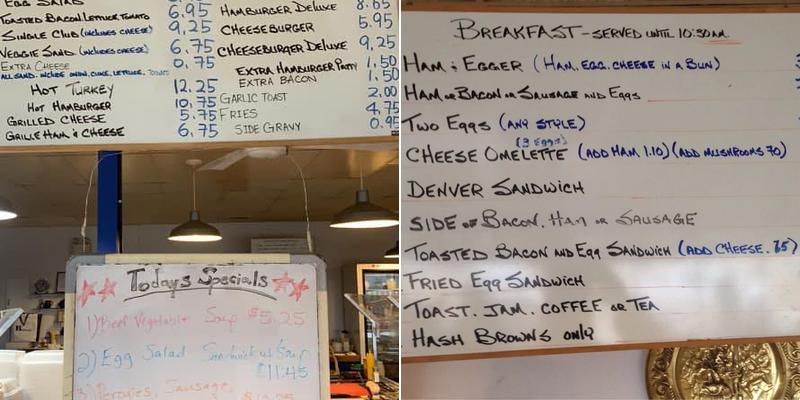 EGG SALAD
TOASTED BACON LETTUCE TOMATO 6.95
SINGLE CLUB (INCLUDES CHEESE) 9,25
VEGGIE SAND. (INCLUDES CHEESE) 6.75
EXTRA CHEESE 0,75
ALL SAND. INCLUDE ONION, CUKE, LETTUCE, TOMATO
HOT TURKEY 12.25
HOT HAMBURGER 10.75
GRILLED CHEESE 5.75
GRILLE HAM & CHEESE 6.75
HAMBURGER DELUXE 8.65
CHEESEBURGER 5.95
CHEESEBURGER DELUXE 9,25
EXTRA HAMBURGER PATTY 1,50
EXTRA BACON 1,50
GARLIC TOAST 2.00
FRIES 4,75
SIDE GRAVY 0.95
Todays Specials
1) Beef Vegetable Soup $5.25
2) Egg Salad Sandwich w/ Soup
$11.45
3) Perogies, Sausage,
BREAKFAST - SERVED UNTIL 10:30AM.
HAM & EGGER (HAM, EGG, CHEESE IN A BUN)
HAM OR BACON OR SAUSAGE AND EGGS
TWO EGGS (ANY STYLE)
(3 EGGS)
CHEESE OMELETTE (ADD HAM 1.10) (ADD MUSHROOMS 70)
DENVER SANDWICH
SIDE OF BACON, HAM OR SAUSAGE
TOASTED BACON AND EGG SANDWICH (ADD CHEESE .85)
FRIED EGG SANDWICH
TOAST, JAM, COFFEE OR TEA
HASH BROWNS ONLY